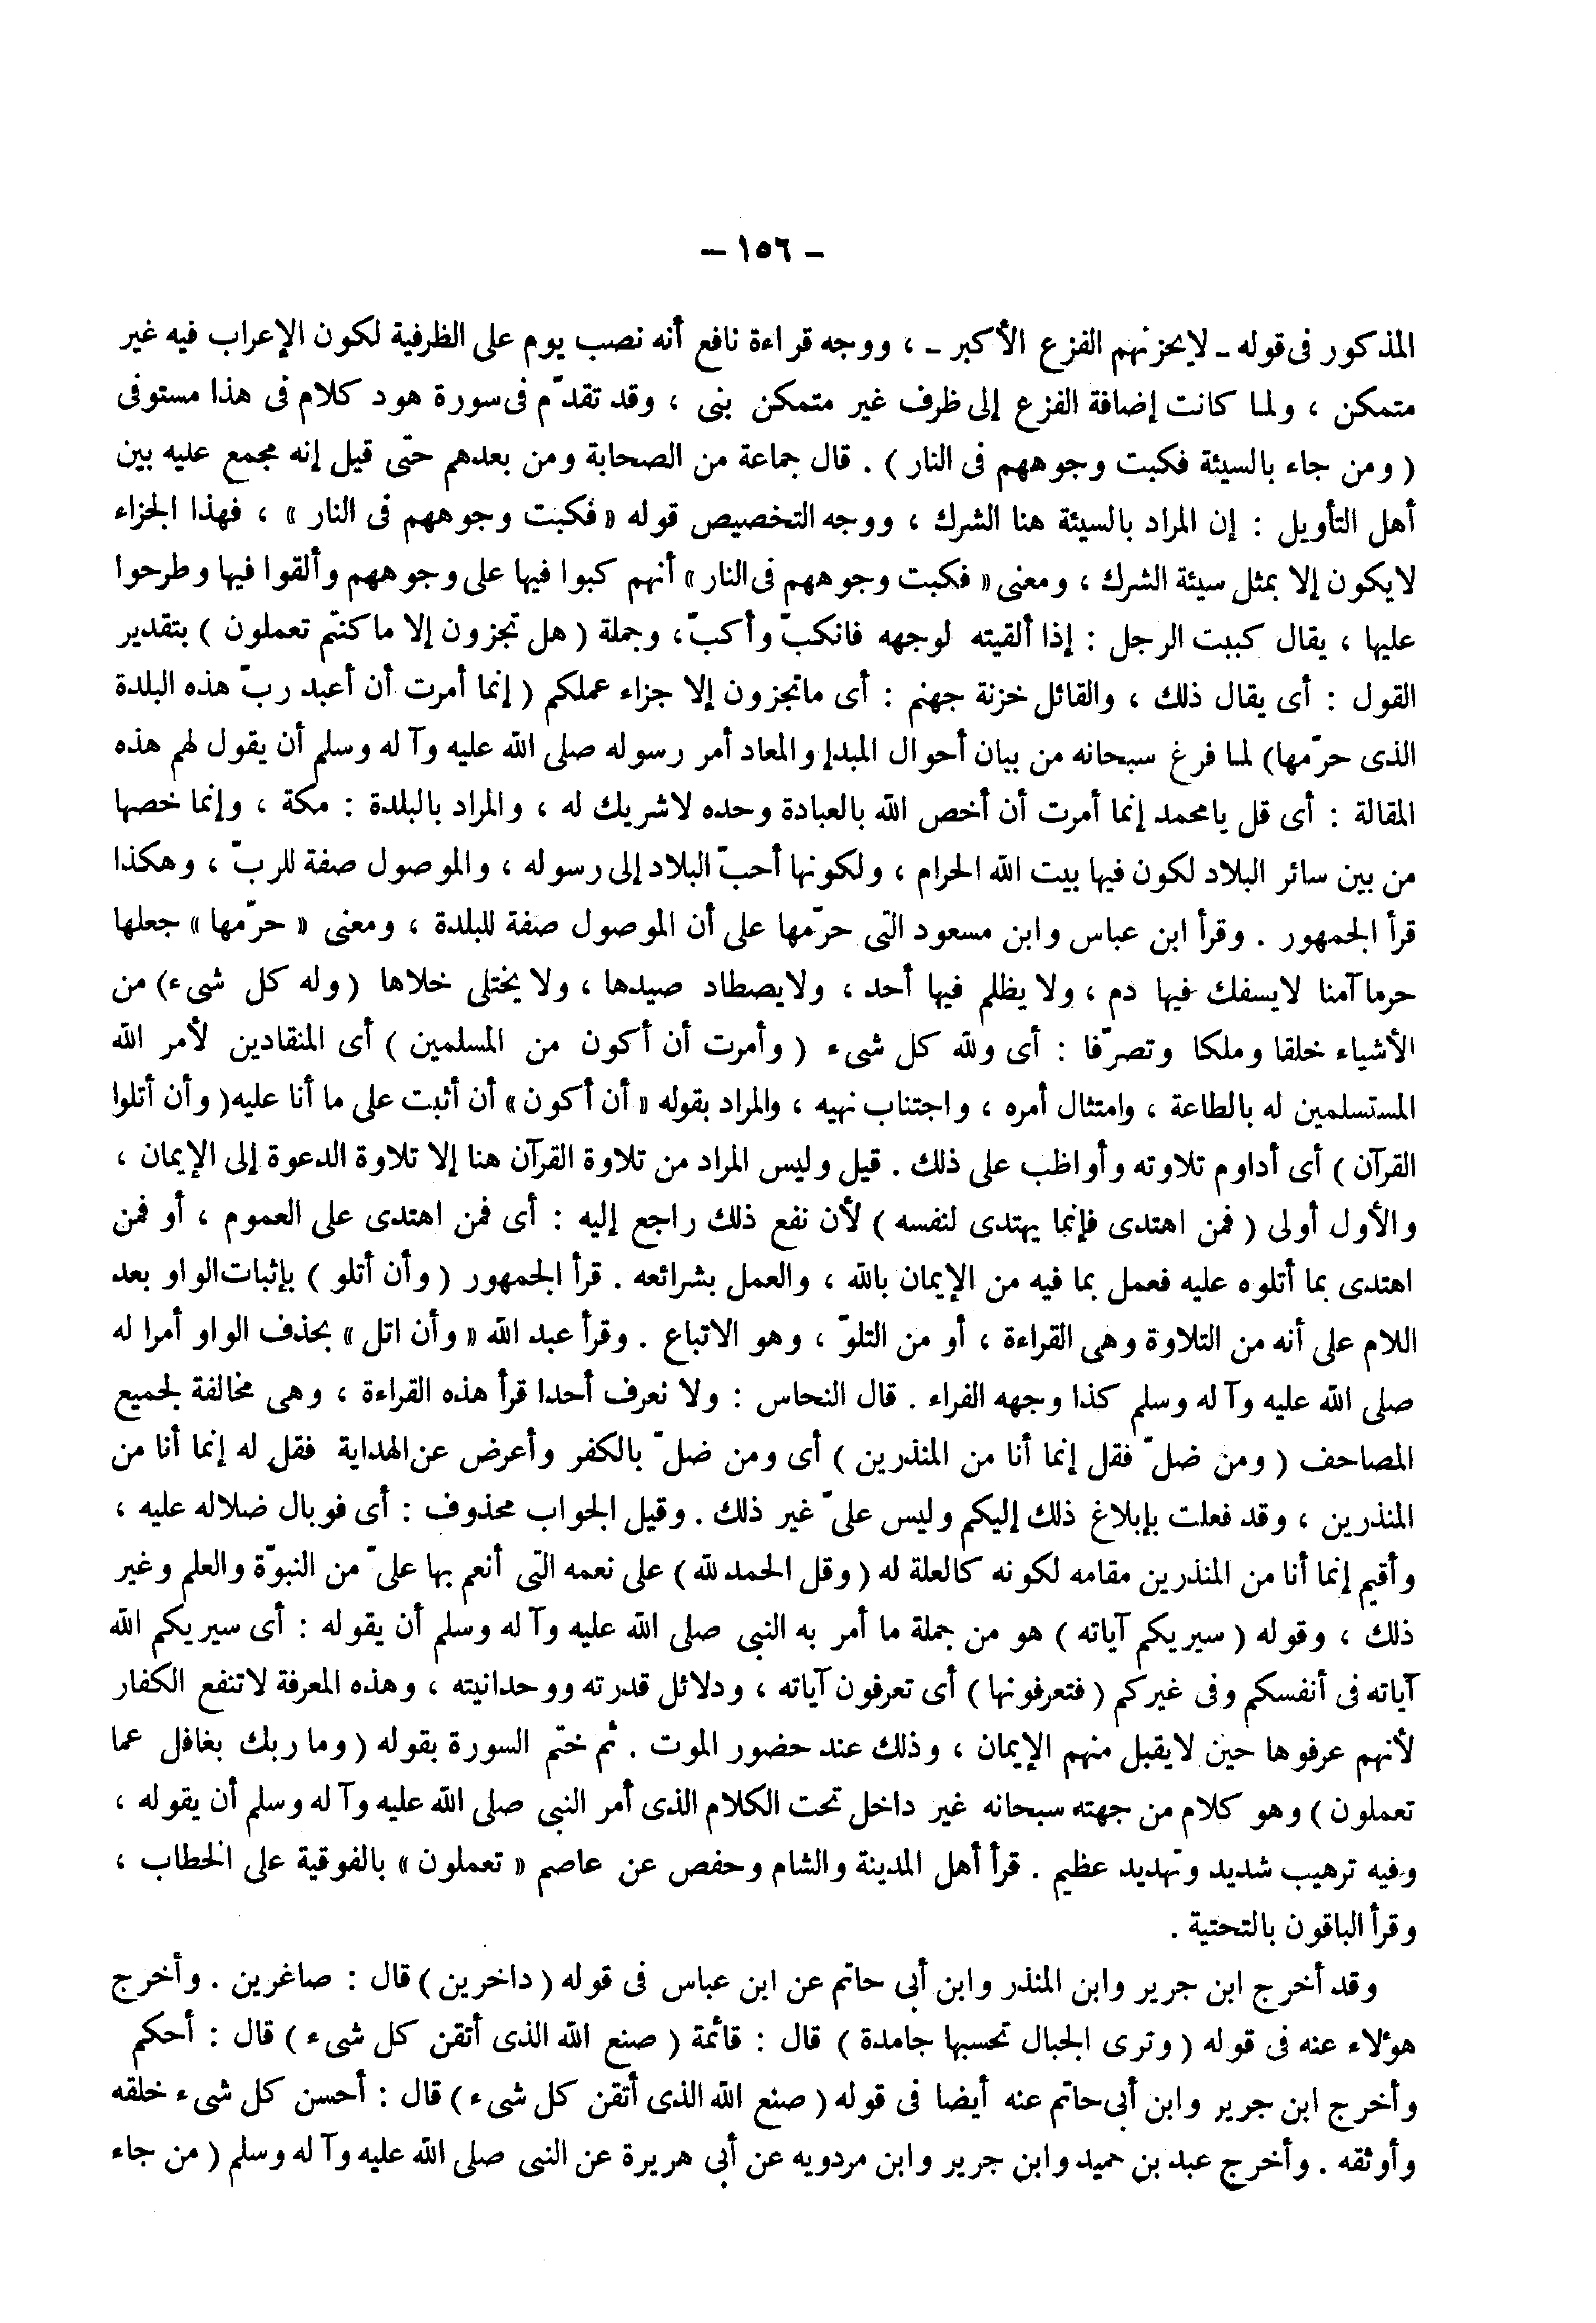 — ١٥٦ —
المذكور فى قوله ـ لايحزنهم الفزع الأكبر ـ ، ووجه قراءة نافع أنه نصب يوم على الظرفية لكون الإعراب فيه غير
متمكن ، ولما كانت إضافة الفزع إلى ظرف غير متمكن بنى ، وقد تقدّم فى سورة هود كلام فى هذا مستوفى
( ومن جاء بالسيئة فكبت وجوههم فى النار ) . قال جماعة من الصحابة ومن بعدهم حتى قيل إنه مجمع عليه بين
أهل التأويل : إن المراد بالسيئة هنا الشرك ، ووجه التخصيص قوله « فكبت وجوههم فى النار » ، فهذا الجزاء
لايكون إلا بمثل سيئة الشرك ، ومعنى « فكبت وجوههم فى النار » أنهم كبوا فيها على وجوههم وألقوا فيها وطرحوا
عليها ، يقال كببت الرجل : إذا ألقيته لوجهه فانكبّ وأكبّ، وجملة ( هل تجزون إلا ماكنتم تعملون ) بتقدير
القول : أى يقال ذلك ، والقائل خزنة جهنم : أى ماتجزون إلا جزاء عملكم ( إنما أمرت أن أعبد ربّ هذه البلدة
الذى حرّمها) لما فرغ سبحانه من بيان أحوال المبدإ والمعاد أمر رسوله صلى الله عليه وآله وسلم أن يقول لهم هذه
المقالة : أى قل يامحمد إنما أمرت أن أخص الله بالعبادة وحده لاشريك له ، والمراد بالبلدة : مكة ، وإنما خصها
من بين سائر البلاد لكون فيها بيت الله الحرام ، ولكونها أحبّ البلاد إلى رسوله ، والموصول صفة للربّ ، وهكذا
قرأ الجمهور . وقرأ ابن عباس وابن مسعود التى حرّمها على أن الموصول صفة للبلدة ، ومعنى « حرّمها » جعلها
حرما آمنا لايسفك فيها دم ، ولا يظلم فيها أحد ، ولايصطاد صيدها ، ولا يختلى خلاها ( وله كل شىء) من
الأشياء خلقا وملكا وتصرّفا : أى ولله كل شىء ( وأمرت أن أكون من المسلمين ) أى المنقادين لأمر الله
المستسلمين له بالطاعة ، وامتثال أمره ، واجتناب نهيه ، والمراد بقوله « أن أكون » أن أثبت على ما أنا عليه( وأن أتلوا
القرآن ) أى أداوم تلاوته وأواظب على ذلك . قيل وليس المراد من تلاوة القرآن هنا إلا تلاوة الدعوة إلى الإيمان ،
والأول أولى ( فمن اهتدى فإنما يهتدى لنفسه ) لأن نفع ذلك راجع إليه : أى فمن اهتدى على العموم ، أو فمن
اهتدى بما أتلوه عليه فعمل بما فيه من الإيمان بالله ، والعمل بشرائعه . قرأ الجمهور ( وأن أتلو ) بإثبات الواو بعد
اللام على أنه من التلاوة وهى القراءة ، أو من التلوّ ، وهو الاتباع . وقرأ عبد الله « وأن اتل » بحذف الواو أمرا له
صلى الله عليه وآله وسلم كذا وجهه الفراء . قال النحاس : ولا نعرف أحدا قرأ هذه القراءة ، وهى مخالفة لجميع
المصاحف ( ومن ضلّ فقل إنما أنا من المنذرين ) أى ومن ضلّ بالكفر وأعرض عن الهداية فقل له إنما أنا من
المنذرين ، وقد فعلت بإبلاغ ذلك إليكم وليس علىّ غير ذلك . وقيل الجواب محذوف : أى فوبال ضلاله عليه ،
وأقيم إنما أنا من المنذرين مقامه لكونه كالعلة له ( وقل الحمد لله ) على نعمه التى أنعم بها علىّ من النبوّة والعلم وغير
ذلك ، وقوله ( سيريكم آياته ) هو من جملة ما أمر به النبى صلى الله عليه وآله وسلم أن يقوله : أى سيريكم الله
آياته فى أنفسكم وفى غيركم ( فتعرفونها ) أى تعرفون آياته ، ودلائل قدرته ووحدانيته ، وهذه المعرفة لاتنفع الكفار
لأنهم عرفوها حين لايقبل منهم الإيمان ، وذلك عند حضور الموت . ثم ختم السورة بقوله ( وما ربك بغافل عما
تعملون ) وهو كلام من جهته سبحانه غير داخل تحت الكلام الذى أمر النبى صلى الله عليه وآله وسلم أن يقوله ،
وفيه ترهيب شديد وتهديد عظيم . قرأ أهل المدينة والشام وحفص عن عاصم « تعملون » بالفوقية على الخطاب ،
وقرأ الباقون بالتحتية .
وقد أخرج ابن جرير وابن المنذر وابن أبى حاتم عن ابن عباس فى قوله ( داخرين ) قال : صاغرين . وأخرج
هؤلاء عنه فى قوله ( وترى الجبال تحسبها جامدة ) قال : قائمة ( صنع الله الذى أتقن كل شىء ) قال : أحكم
وأخرج ابن جرير وابن أبى حاتم عنه أيضا فى قوله ( صنع الله الذى أتقن كل شىء ) قال : أحسن كل شىء خلقه
وأوثقه . وأخرج عبد بن حميد وابن جرير وابن مردويه عن أبى هريرة عن النبى صلى الله عليه وآله وسلم ( من جاء